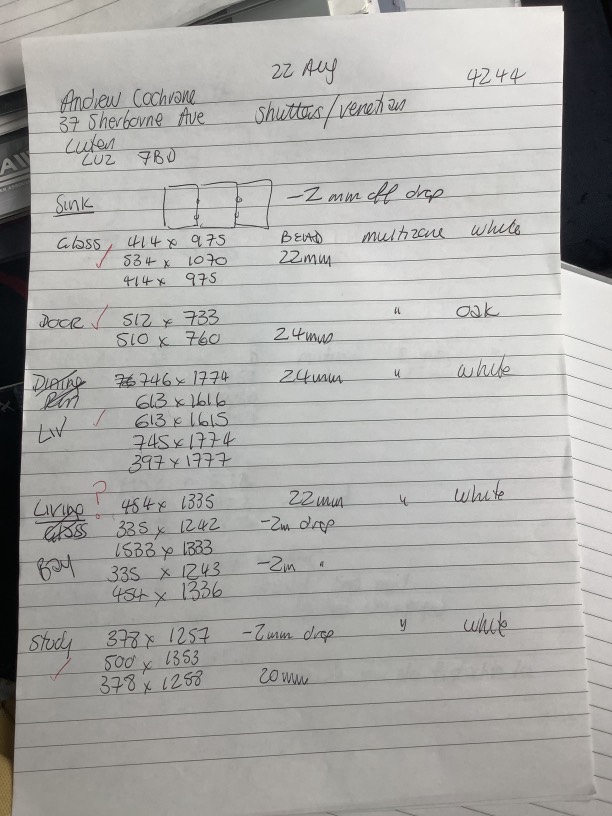 22 Aug
4244
Andrew Cochrane
37 Sherborne Ave shutters/venetian
Luton
LU2 7BD
Sink -2mm off drop
Glass 414 x 975 BEAD multizone white
534 x 1070 22mm
414 x 975
DOOR 512 x 733 " oak
510 x 760 24mm
Dining 746 x 1774 24mm " white
Rm 613 x 1616
LIV 613 x 1615
745 x 1774
397 x 1777
Living ? 454 x 1335 22mm " white
Glass 335 x 1242 -2m drop
1533 x 1333
BAY 335 x 1243 -2m "
454 x 1336
Study 378 x 1257 -2mm drop " white
500 x 1353
378 x 1258 20mm